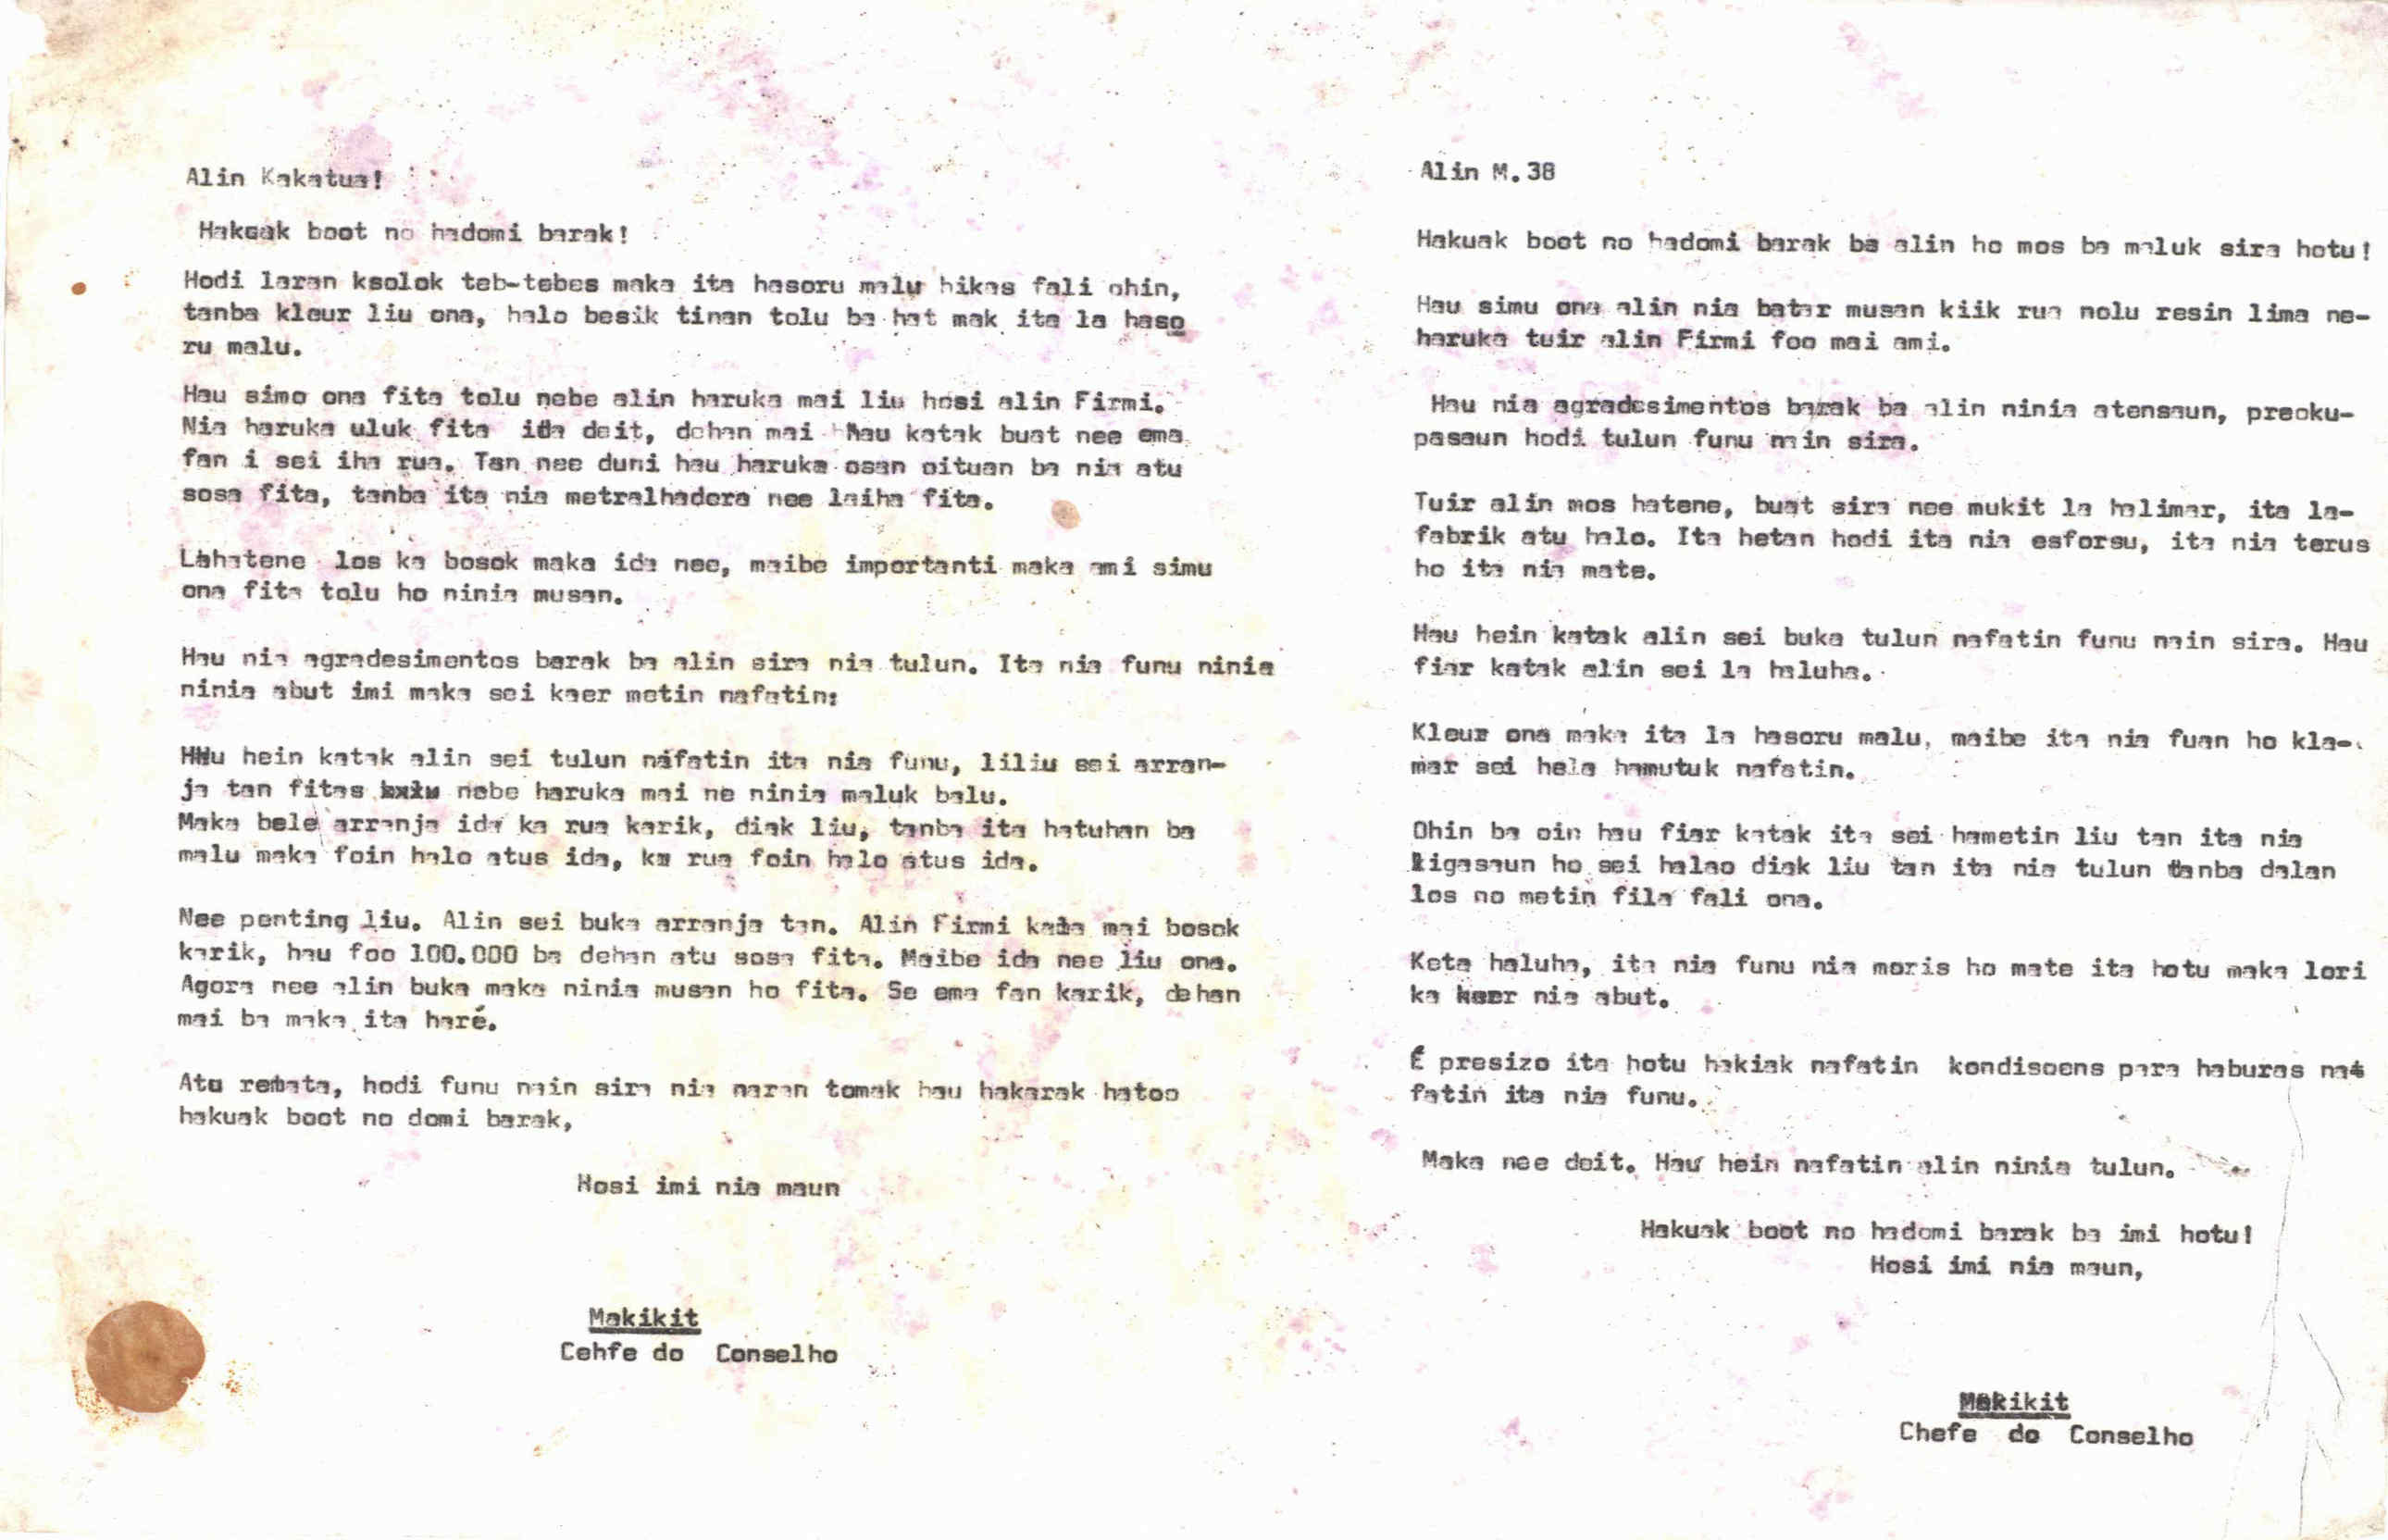 Alin Kakatua!
Hakuak boot no hadomi barak!
Hodi laran ksolok teb-tebes maka ita hasoru malu hikas fali ohin,
tanba kleur liu ona, halo besik tinan tolu ba hat mak ita la haso
ru malu.
Hau simo ona fita tolu nebe alin haruka mai liu hosi alin Firmi.
Nia haruka uluk fita ida deit, dehan mai Hau katak buat nee ema
fan i sei iha rua. Tan nee duni hau haruka osan oituan ba nia atu
sosa fita, tanba ita nia metralhadora nee laiha fita.
Lahatene los ka bosok maka ida nee, maibe importanti maka ami simu
ona fita tolu ho ninia musan.
Hau nia agradesimentos barak ba alin sira nia tulun. Ita nia funu ninia
ninia abut imi maka sei kaer metin nafatin:
Hau hein katak alin sei tulun nafatin ita nia funu, liliu sei arran-
ja tan fitas nebe haruka mai ne ninia maluk balu.
Maka bele arranja ida ka rua karik, diak liu, tanba ita hatuhan ba
malu maka foin halo atus ida, ka rua foin halo atus ida.
Nee penting liu. Alin sei buka arranja tan. Alin Firmi mai bosok
karik, hau foo 100.000 ba dehan atu sosa fita. Maibe ida nee liu ona.
Agora nee alin buka maka ninia musan ho fita. Se ema fan karik, dehan
mai ba maka ita haré.
Atu remata, hodi funu nain sira nia naran tomak hau hakarak hatoo
hakuak boot no domi barak,
Hosi imi nia maun
Makikit
Cehfe do Conselho
Alin M.38
Hakuak boot no hadomi barak ba alin ho mos ba maluk sira hotu!
Hau simu ona alin nia batar musan kiik rua nolu resin lima ne-
haruka tuir alin Firmi foo mai ami.
Hau nia agradesimentos barak ba alin ninia atensaun, preoku-
pasaun hodi tulun funu nain sira.
Tuir alin mos hatene, buat sira nee mukit la halimar, ita la-
fabrik atu halo. Ita hetan hodi ita nia esforsu, ita nia terus
ho ita nia mate.
Hau hein katak alin sei buka tulun nafatin funu nain sira. Hau
fiar katak alin sei la haluha.
Kleur ona maka ita la hasoru malu, maibe ita nia fuan ho kla-
mar sei hela hamutuk nafatin.
Ohin ba oin hau fiar katak ita sei hametin liu tan ita nia
ligasaun ho sei halao diak liu tan ita nia tulun tanba dalan
los no metin fila fali ona.
Keta haluha, ita nia funu nia moris ho mate ita hotu maka lori
ka kaer nia abut.
É presizo ita hotu hakiak nafatin kondisoens para haburas na
fatin ita nia funu.
Maka nee deit. Hau hein nafatin alin ninia tulun.
Hakuak boot no hadomi barak ba imi hotu!
Hosi imi nia maun,
Makikit
Chefe do Conselho